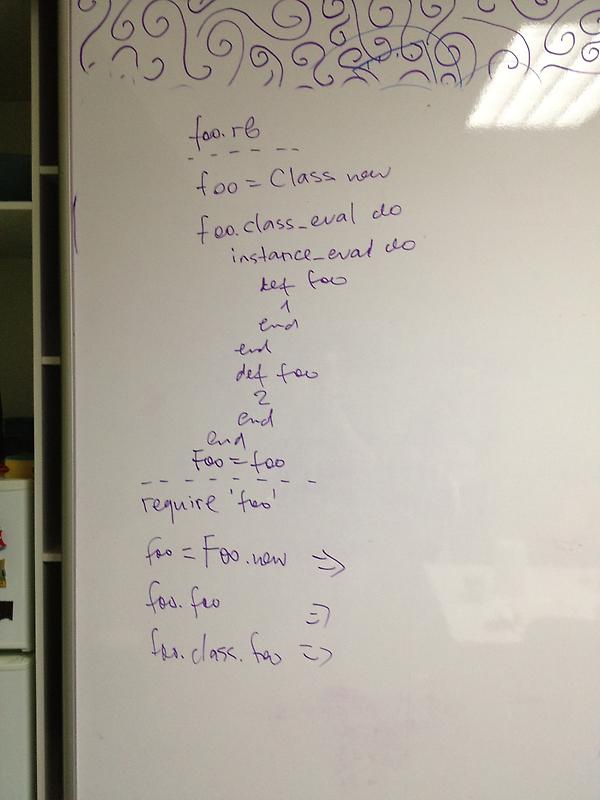 foo.rb
foo = Class new
foo.class_eval do
instance_eval do
def foo
1
end
end
def foo
2
end
end
Foo = foo
require 'foo'
foo = Foo.new =>
foo.foo =>
foo.class.foo =>